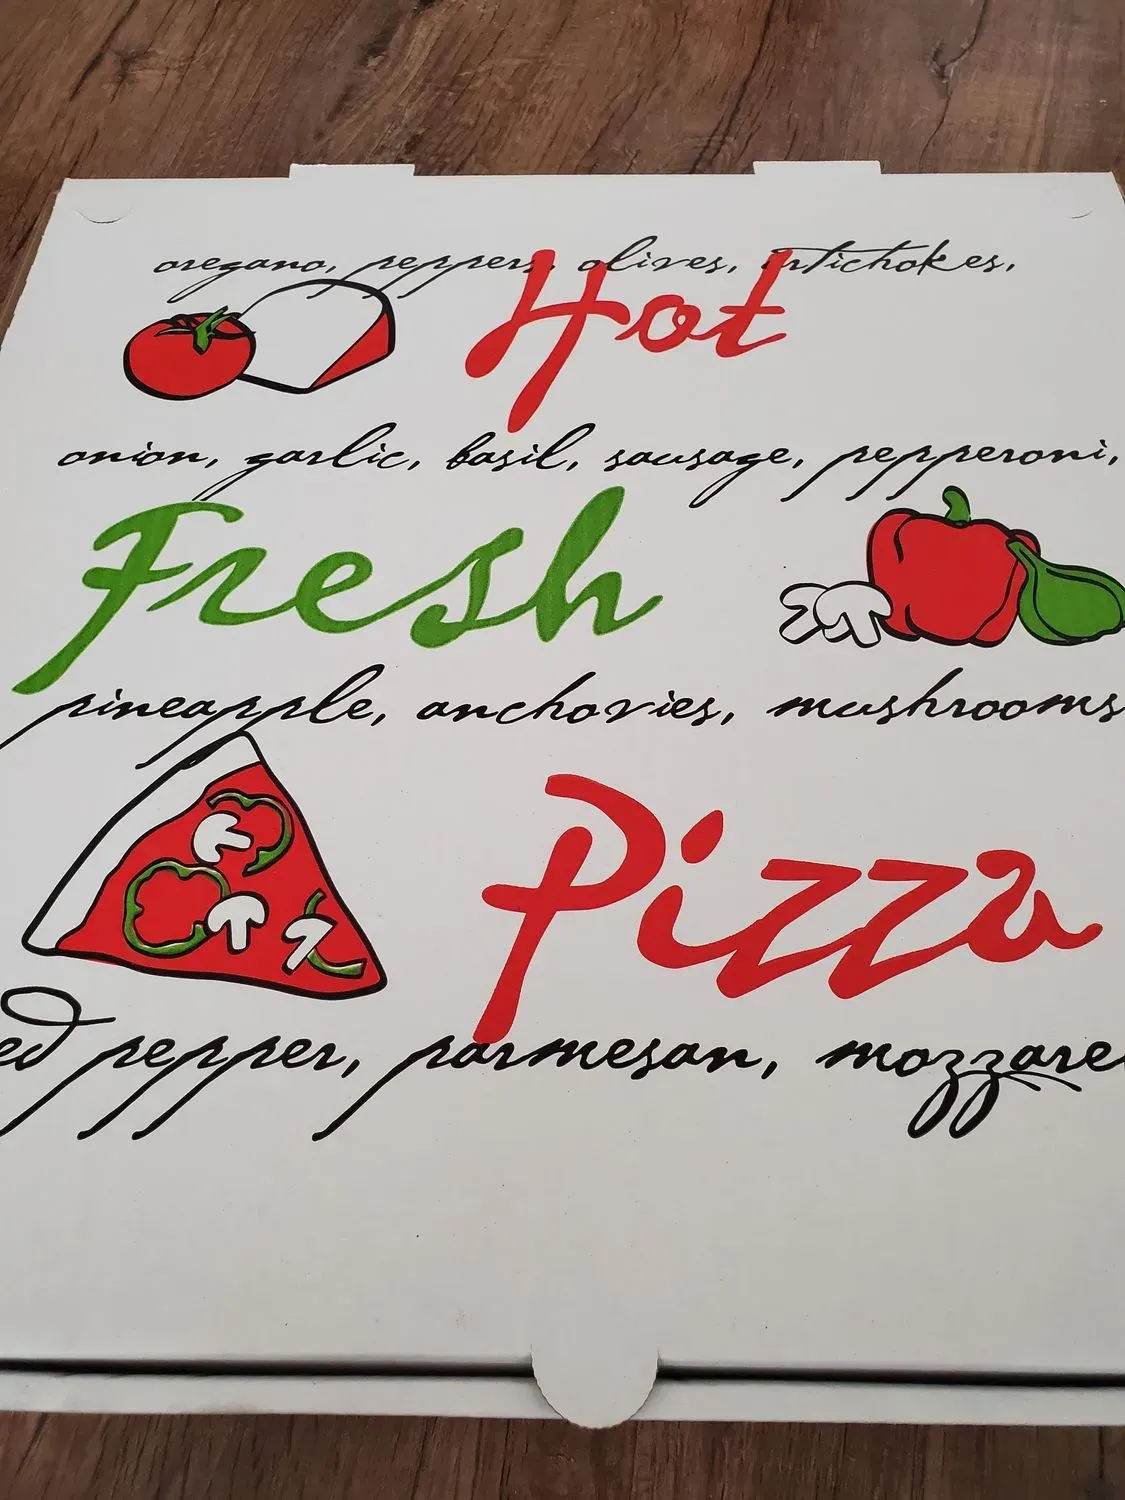 oregano, peppers, olives, artichokes,
Hot
onion, garlic, basil, sausage, pepperoni,
Fresh
pineapple, anchovies, mushrooms
Pizza
ed pepper, parmesan, mozzare